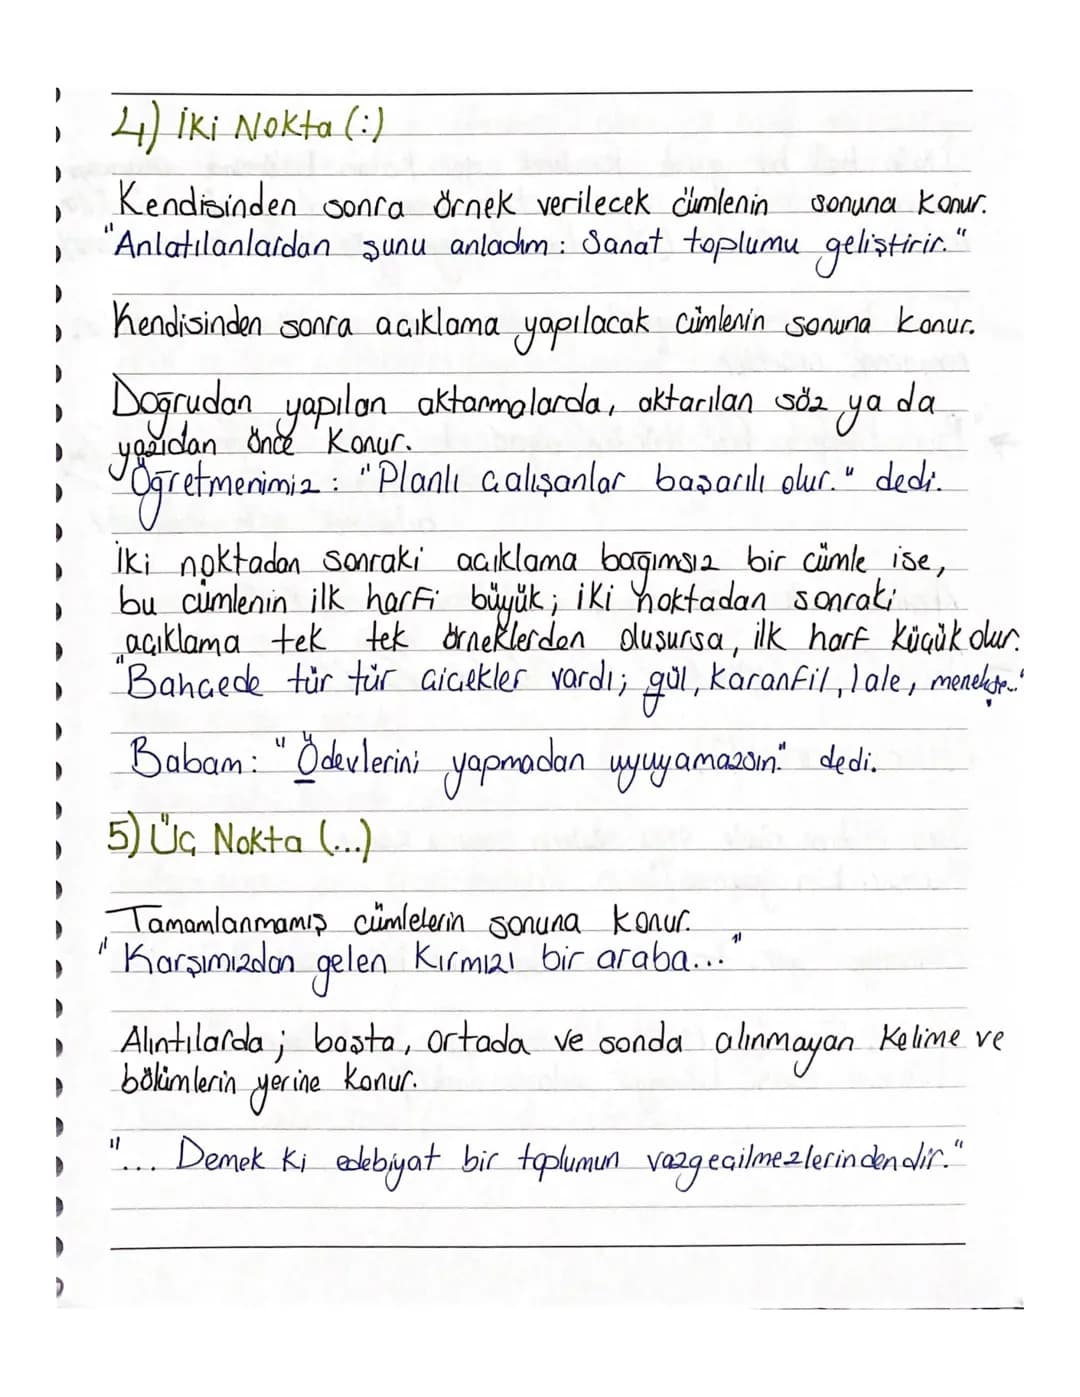 4) İki Nokta (:)
Kendisinden sonra örnek verilecek cümlenin sonuna konur.
"Anlatılanlardan şunu anladım: Sanat toplumu geliştirir."
Kendisinden sonra açıklama yapılacak cümlenin sonuna konur.
Doğrudan yapılan aktarmalarda, aktarılan söz ya da
yazıdan önce konur.
Öğretmenimiz: "Planlı çalışanlar başarılı olur." dedi.
İki noktadan sonraki açıklama bağımsız bir cümle ise,
bu cümlenin ilk harfi büyük; iki noktadan sonraki
açıklama tek tek örneklerden oluşursa, ilk harf küçük olur.
"Bahçede tür tür çiçekler vardı; gül, karanfil, lale, menekşe..."
Babam: "Ödevlerini yapmadan uyuyamazsın." dedi.
5) Üç Nokta (...)
Tamamlanmamış cümlelerin sonuna konur.
"Karşımızdan gelen kırmızı bir araba..."
Alıntılarda; başta, ortada ve sonda alınmayan kelime ve
bölümlerin yerine konur.
"... Demek ki edebiyat bir toplumun vazgeçilmezlerindendir."